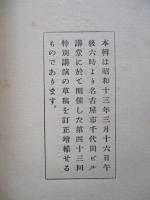 本輯は昭和十三年三月十六日午
後六時より名古屋市千代田ビル
講堂に於て開催した第四十三回
特別講演の草稿を訂正増補せる
ものであります。